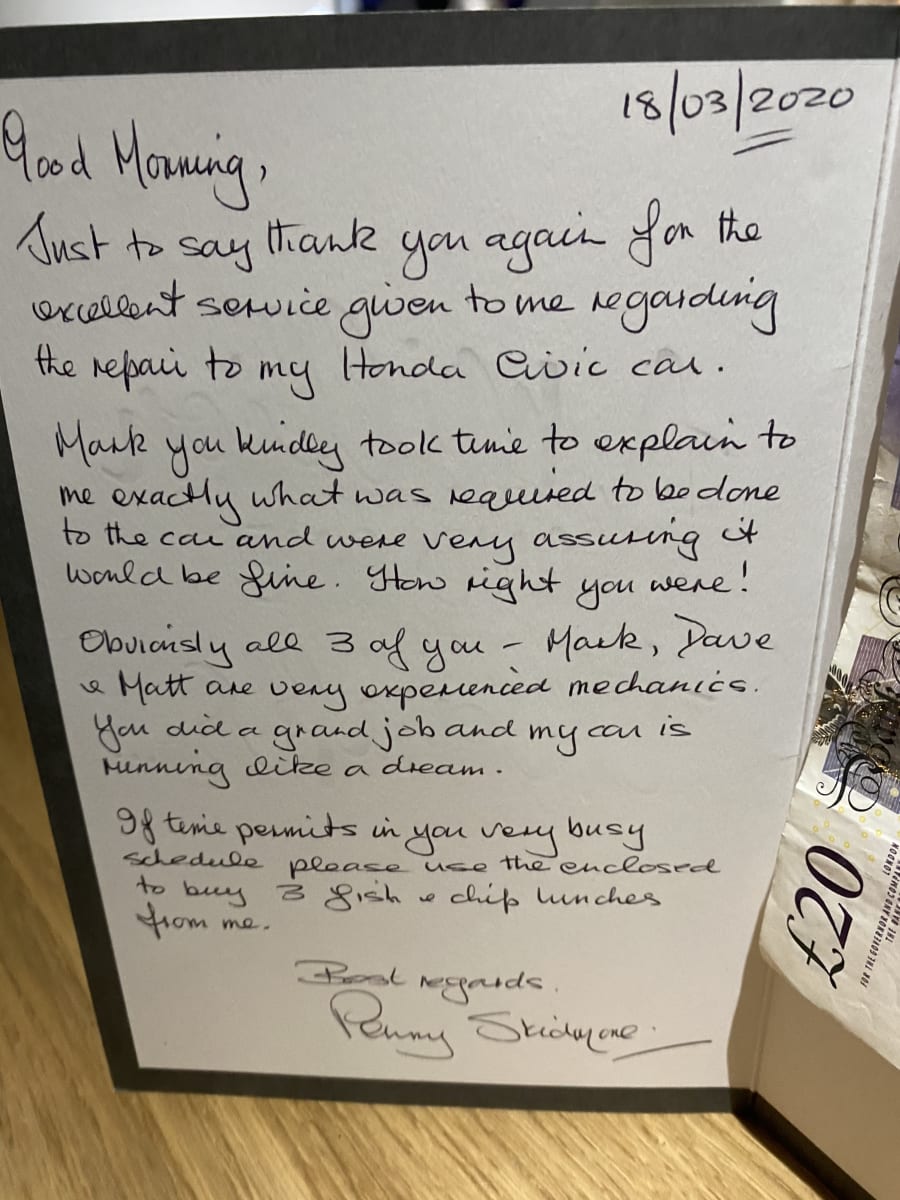 18/03/2020
Good Morning,
Just to say thank you again for the
excellent service given to me regarding
the repair to my Honda Civic car.
Mark you kindley took time to explain to
me exactly what was required to be done
to the car and were very assuring it
would be fine. How right you were!
Obviously all 3 of you - Mark, Dave
& Matt are very experienced mechanics.
You did a grand job and my car is
running like a dream.
If time permits in you very busy
schedule please use the enclosed
to buy 3 fish & chip lunches
from me.
Best regards.
Penny Skidmore
£20
FOR THE GOVERNOR AND COMPAN
LONDON
THE BANK